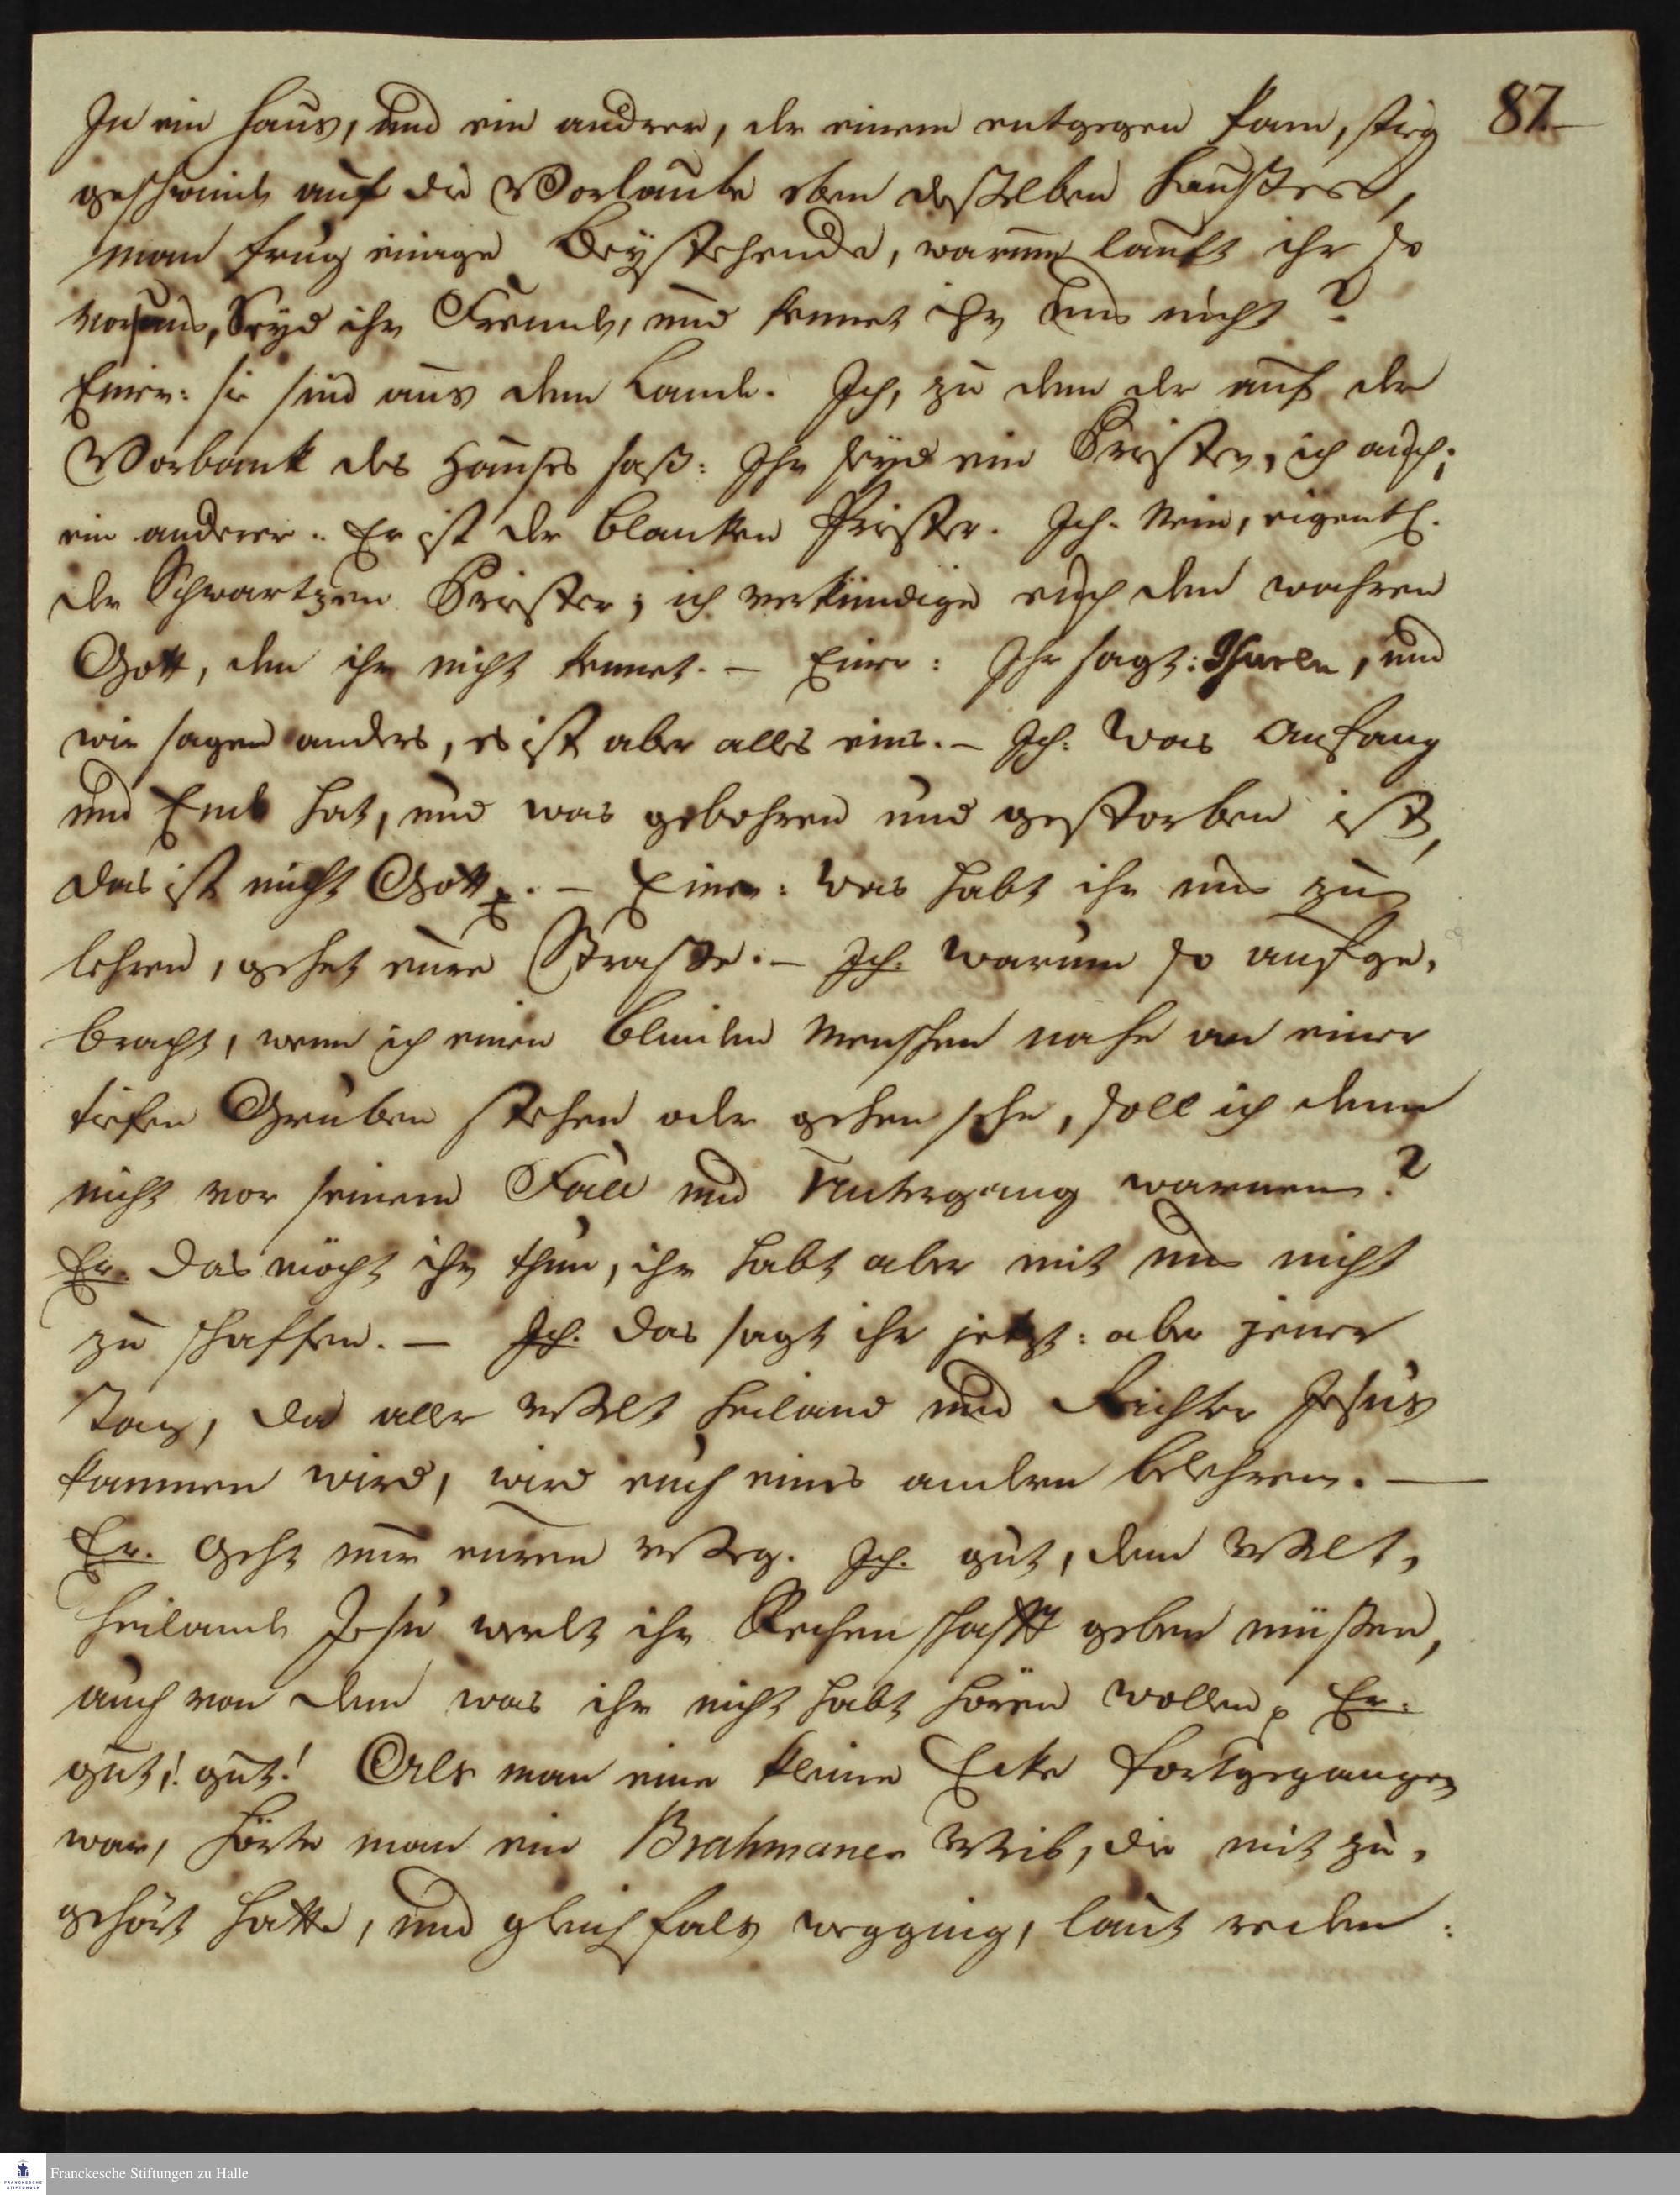 87.
In ein Haus, und ein andrer, der einem entgegen kam, stieg
geschwind auf die Vorlaube eben desselben Hausses,
man frug einige Beystehende, warum lauft ihr so
vor uns, Seyd ihr Fremde, und kennet ihr uns nicht?
Einer: sie sind aus dem Lande. Ich, zu dem der auf der
Vorbank des Hauses saß: Ihr seyd ein Priester, ich auch;
ein anderer: Er ist der blanken Priester. Ich. Nein, eigentl.
der Schwartzen Priester; ich verkündige euch den wahren
Gott, den ihr nicht kennet. — Einer: Ihr sagt: Isuren, und
wir sagen anders, es ist aber alles eins. — Ich: Was Anfang
und Ende hat, und was gebohren und gestorben ist,
das ist nicht Gott. — Einer: Was habt ihr uns zu
lehren, gehet eure Strasse. — Ich. Warum so aufge-
bracht, wenn ich einen blinden Menschen nahe an einer
tiefen Gruben stehen oder gehen sehe, soll ich denn
nicht vor seinem Fall und Untergang warnen?
Er. Das mögt ihr thun, ihr habt aber mit uns nicht
zu schaffen. — Ich. Das sagt ihr jetzt: aber jener
Tag, da aller Welt Heiland und Richter Jesus
kommen wird, wird euch eines andern belehren. —
Er. Geht nur euren Weg. Ich. gut, dem Welt-
Heilande Jesu werdt ihr Rechenschafft geben müßen,
auch von dem was ihr nicht habt hören wollen. Er:
gut! gut! Als man eine kleine Ecke fortgegangen
war, hörte man ein Brahmanen Weib, die mit zu-
gehört hatte, und gleichfals wegging, laut reden:
Franckesche Stiftungen zu Halle